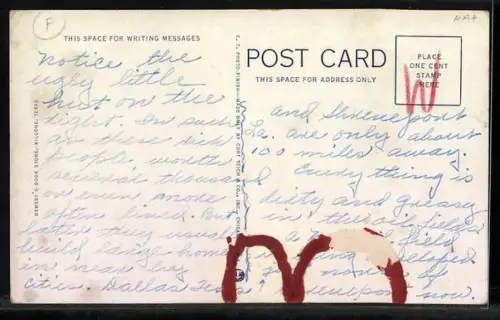 F
NAT
THIS SPACE FOR WRITING MESSAGES
POST CARD
THIS SPACE FOR ADDRESS ONLY
PLACE
ONE CENT
STAMP
HERE
W
Notice the
ugly little
hut on the
right. In such
as these rich
people, worth
several thousand
or even more
often lived. But
later they usually
build large homes
in near by
cities. Dallas Texas
and Shreveport
La. are only about
100 miles away.
Everything is
dirty and greasy
in the oil fields
a field
is being developed
now
Shreveport now.
KILGORE, TEXAS
m